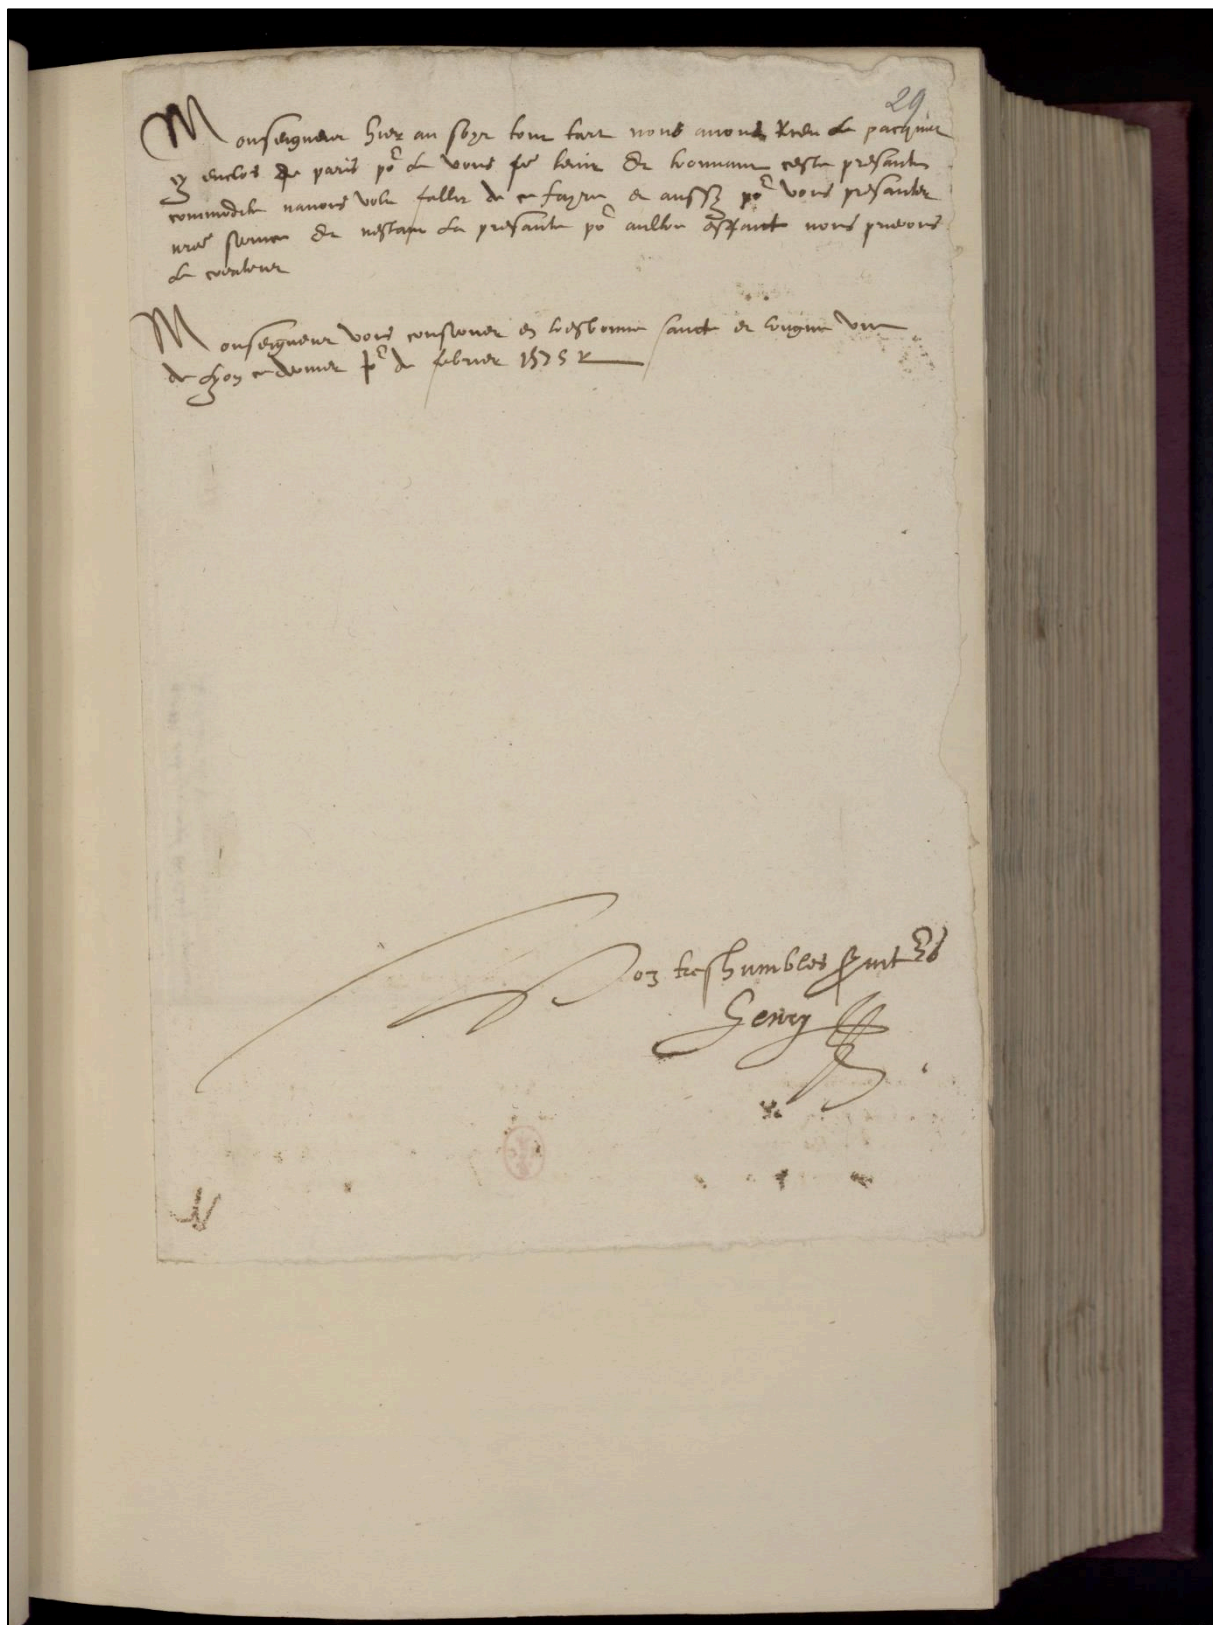 29
Monseigneur hier au soyr tout tart nous avons Receu le pacquet
cy enclos de paris por le vous fe tenir Et trouvant ceste presante
commodite navons volu fallir de ce fayre et aussy por vous presanter
nre service Et nestant la presante por aultre effaict nous prierons
le createur
Monseigneur vous conserver en tresbonne santé et longue vie
de Lyon ce dernier jor de febvrier 1575
Voz treshumbles
Henry